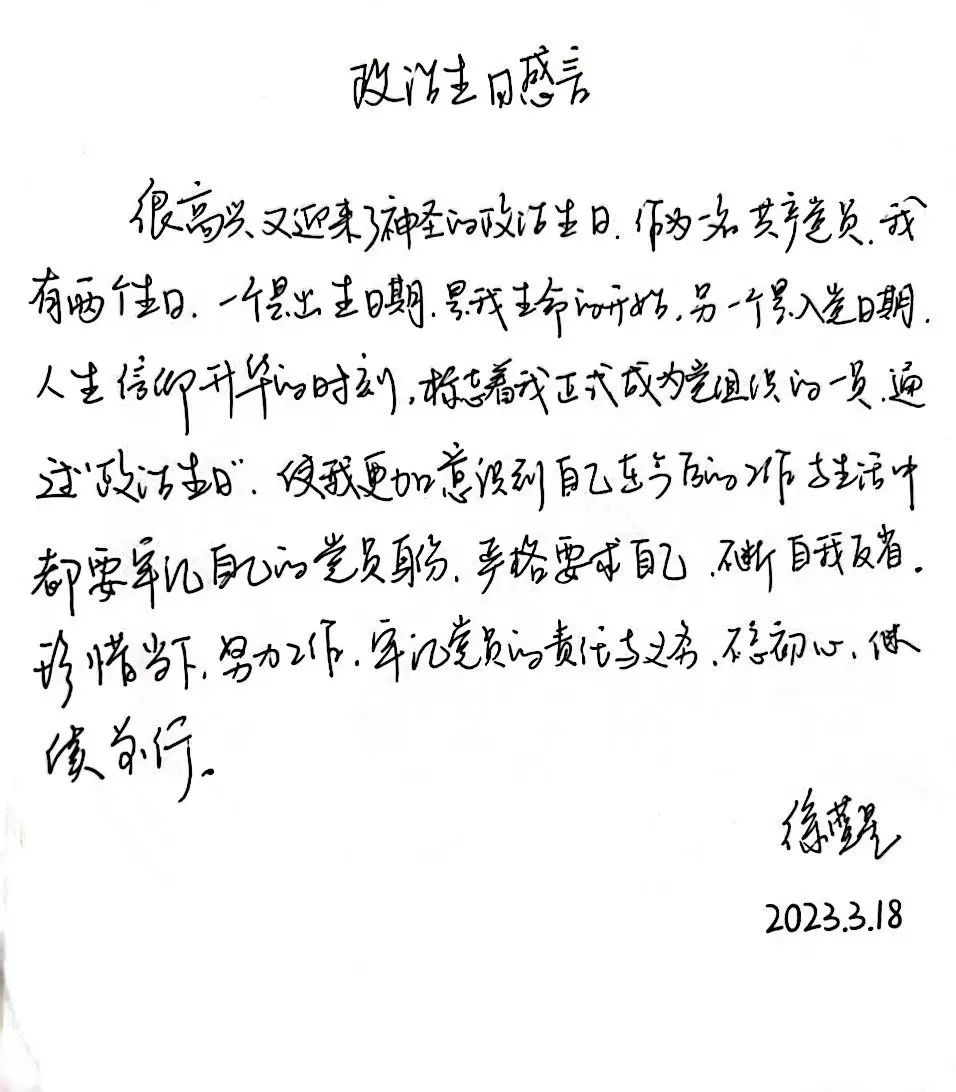 政治生日感言
很高兴又迎来了神圣的政治生日.作为一名共产党员.我
有两个生日.一个是出生日期.是我生命的开始,另一个是入党日期.
人生信仰升华的时刻,标志着我正式成为党组织的一员.通
过“政治生日”.使我更加意识到自己在今后的工作与生活中
都要牢记自己的党员身份.严格要求自己.不断自我反省.
珍惜当下.努力工作.牢记党员的责任与义务.不忘初心.继
续前行。
徐
2023.3.18